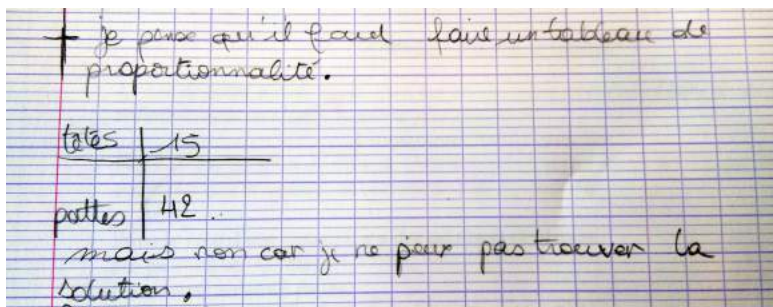 + je pense qu'il faud faire un tableau de
proportionnalité.
têtes 15
pattes 42
mais non car je ne peux pas trouver la
solution.